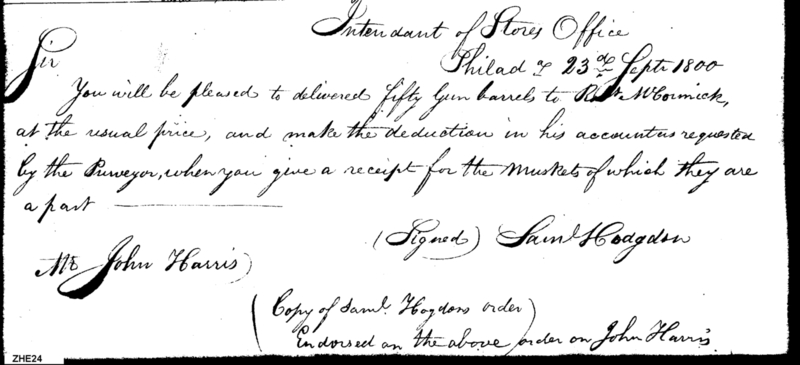 Intendant of Stores Office
Philada 23d Septr 1800
Sir
You will be pleased to delivered fifty Gun barrels to Robt McCormick,
at the usual price, and make the deduction in his account as requested
by the Purveyor, when you give a receipt for the Muskets of which they are
a part
(Signed) Saml Hodgdon
Mr John Harris)
(Copy of Saml. Hogdons order)
Endorsed on the above order on John Harris.
ZHE24